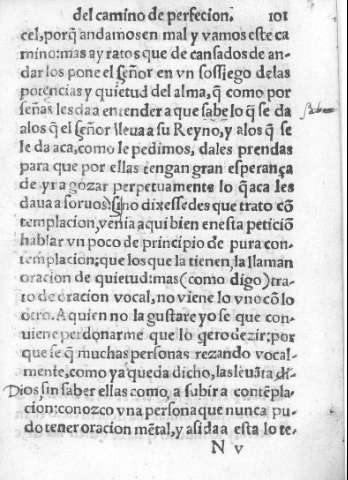 del camino de perfecion. 101
cel, porq̃ andamos en mal y vamos este ca
mino: mas ay ratos que de cansados de an-
dar los pone el señor en vn sossiego delas
potencias y quietud del alma, q̃ como por
señas les da a entender a que sabe lo q̃ se da
alos q̃ el señor lleua a su Reyno, y alos q̃ se
le da aca, como le pedimos, dales prendas
para que por ellas tengan gran esperança
de yr a gozar perpetuamente lo q̃ aca les
daua a soruos: si no dixessedes que trato cõ
templacion, venia aqui bien en esta peticiõ
hablar vn poco de principio de pura con-
templacion; que los que la tienen, la llaman
oracion de quietud: mas (como digo) tra-
to de oracion vocal, no viene lo vno cõ lo
otro. A quien no la gustare yo se que con-
uiene perdonarme que lo q̃ero dezir: por
que se q̃ muchas personas rezando vocal-
mente, como ya queda dicho, las leuãta di-
Dios sin saber ellas como, a subir a contẽpla-
cion: conozco vna persona que nunca pu-
do tener oracion mẽtal, y asida a esta lo te-
N v